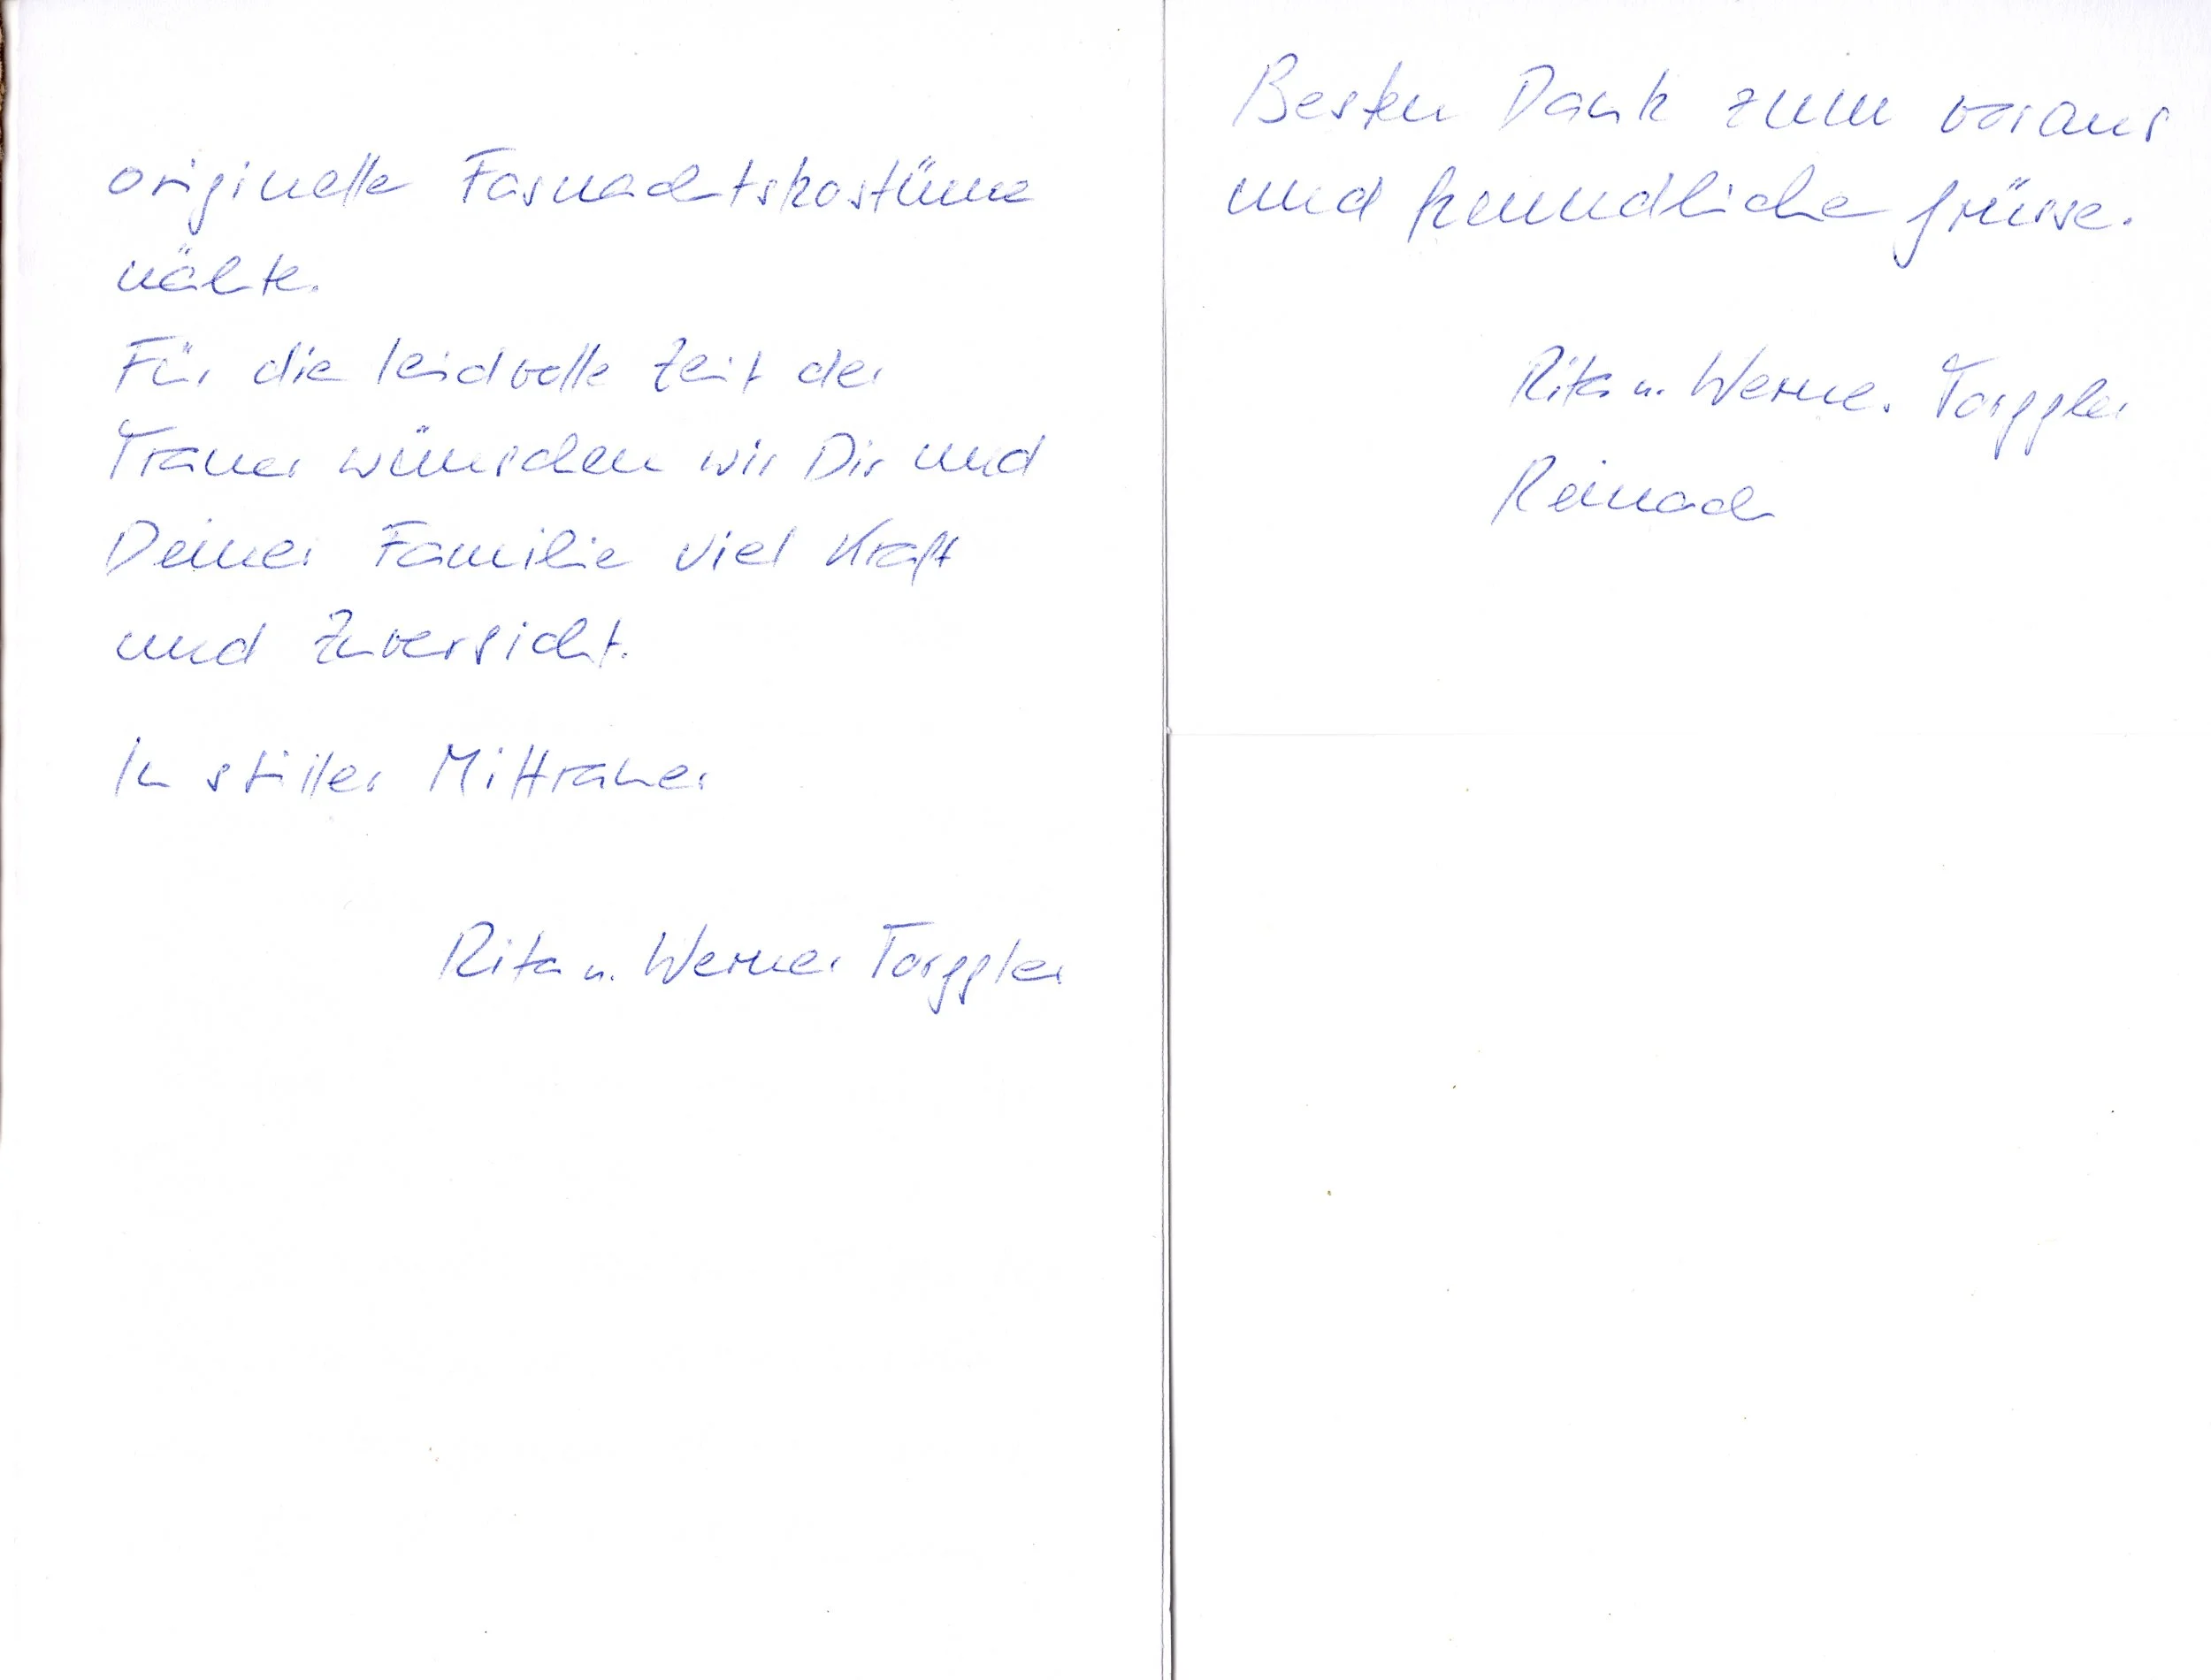 originelle Fasnachtskostüme
nähte.
Für die leidvolle Zeit der
Trauer wünschen wir Dir und
Deiner Familie viel Kraft
und Zuversicht.
In stiller Mittrauer
Rita u. Werner Torggler
Besten Dank zum voraus
und freundliche Grüsse.
Rita u. Werner Torggler
Reinach